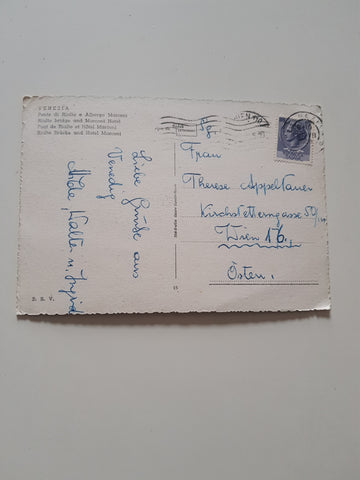 VENEZIA
Ponte di Rialto e Albergo Marconi
Rialto bridge and Marconi Hotel
Pont de Rialto et Hôtel Marconi
Rialto Brücke und Hotel Marconi
Liebe Grüße aus
Venedig
Walter u. Ingrid
Frau
Therese Appeltauer
Kirchstetterngasse
Wien 16.
Österr.
15